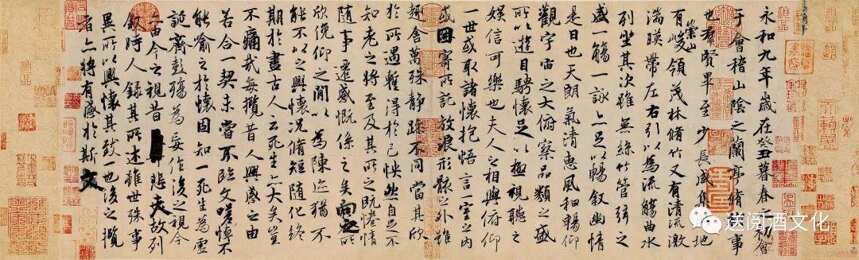 永和九年歲在癸丑暮春之初會
于會稽山陰之蘭亭脩禊事
也群賢畢至少長咸集此地
有崇山峻領茂林脩竹又有清流激
湍暎帶左右引以為流觴曲水
列坐其次雖無絲竹管弦之
盛一觴一詠亦足以暢敘幽情
是日也天朗氣清惠風和暢仰
觀宇宙之大俯察品類之盛
所以遊目騁懷足以極視聽之
娛信可樂也夫人之相與俯仰
一世或取諸懷抱悟言一室之內
或因寄所託放浪形骸之外雖
趣舍萬殊靜躁不同當其欣
於所遇暫得於己怏然自足不
知老之將至及其所之既惓情
隨事遷感慨係之矣向之所
欣俛仰之間以為陳迹猶不
能不以之興懷況脩短隨化終
期於盡古人云死生亦大矣豈
不痛哉每攬昔人興感之由
若合一契未嘗不臨文嗟悼不
能喻之於懷固知一死生為虛
誕齊彭殤為妄作後之視今
亦由今之視昔悲夫故列
敘時人錄其所述雖世殊事
異所以興懷其致一也後之攬
者亦將有感於斯文
送阅酒文化